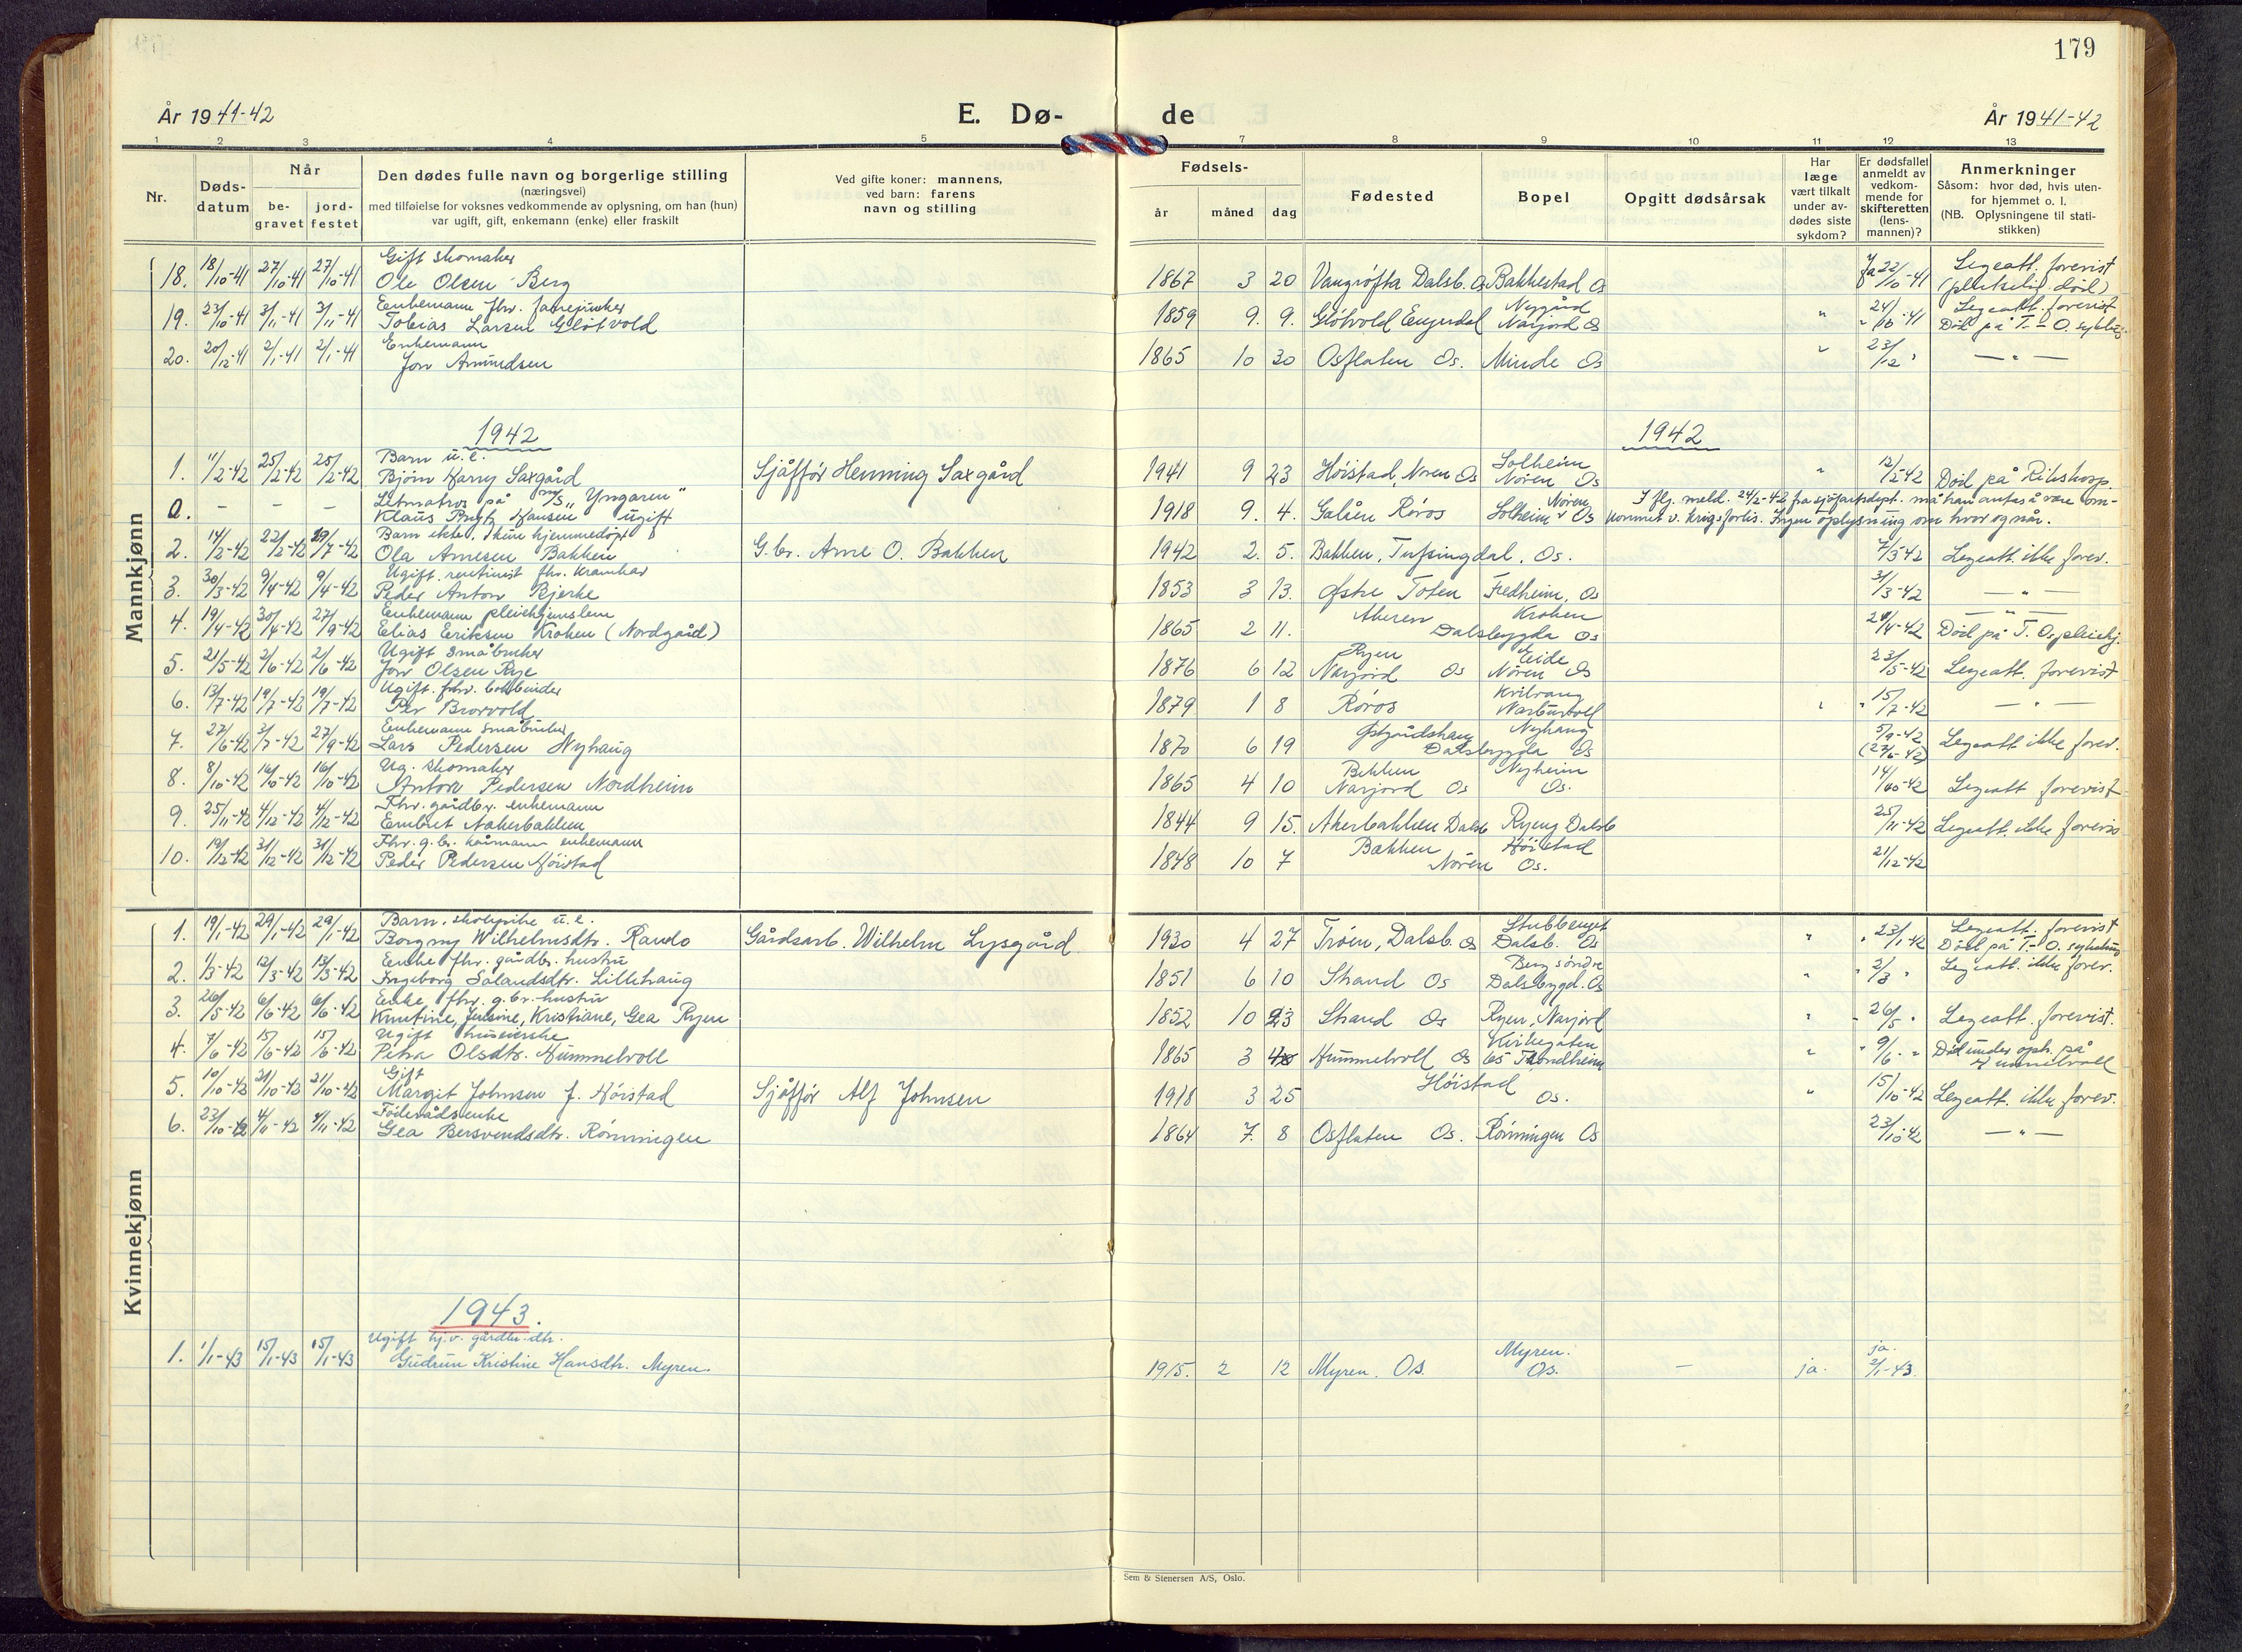 179
År 1941-42
E. Dø-
de
År 1941-42
1
2
3
4
5
7
8
9
10
11
12
13
Nr.
Døds-
datum
Når
be-
gravet
jord-
festet
Den dødes fulle navn og borgerlige stilling
(næringsvei)
med tilføielse for voksnes vedkommende av oplysning, om han (hun)
var ugift, gift, enkemann (enke) eller fraskilt
Ved gifte koner: mannens,
ved barn: farens
navn og stilling
Fødsels-
år
måned
dag
Fødested
Bopel
Opgitt dødsårsak
Har
læge
vært tilkalt
under av-
dødes siste
sykdom?
Er dødsfallet
anmeldt av
vedkom-
mende for
skifteretten
(lens-
mannen)?
Anmerkninger
Såsom: hvor død, hvis uten-
for hjemmet o. l.
(NB. Oplysningene til stati-
stikken)
Mannkjønn
Gift skomaker
Legeatt. forevist
18. 18/10-41 27/10-41 27/10-41 Ole Olsen Berg 1867 3 20 Vangrøfta Dalsb. Os Bakkestad Os Ja 22/10-41 (pludselig død)
Enkemann fhv. fanejunker
Nygård Legeatt. forevist
19. 23/10-41 3/11-41 3/11-41 Tobias Larsen Gløtvold 1859 9. 9. Gløtvold Engerdal Narjord Os " " 24/10-41 Död på T.-O. sykehus
Enkemann
20. 20/12-41 2/1-41 2/1-41 Jon Amundsen 1865 10 30 Osflaten Os. Minde Os " 23/12 " — " —
1942
1942
Barn u.e.
Solheim
1. 11/2-42 25/2-42 25/2-42 Bjørn Harry Saxgård Sjåffør Henning Saxgård 1941 9 23 Høistad, Noren Os Nören Os " 12/2-42 Död på Rikshosp.
Letmatros på M/S "Yngaren"
Nören I flg. meld. 24/2-42 fra sjøfartsdept. må han antas å være om-
0. - - - Klaus Hansen ugift 1918 9. 4. Galåen Røros Solheim Os kommet v. krigsforlis. Ingen oplysning om hvor og når.
Barn ekte. hjemmedöpt
2. 14/2-42 22/2-42 19/7-42 Ola Arnesen Bakken G.br. Arne O. Bakken 1942 2. 5. Bakken, Tufsingdal, Os. 7/3-42 Legeatt. ikke forev.
Ugift rentenist fhv. kramkar
3. 30/3-42 9/4-42 9/4-42 Peder Anton Bjerke 1853 3 13. Østre Toten Fredheim, Os 31/3-42 — " —
Enkemann pleiehjemslem
Akeren Kroken — " —
4. 19/4-42 30/4-42 27/9-42 Elias Eriksen Kroken (Nordgård) 1865 2 11. Dalsbygda Os 20/4-42 Död på T. Os pleiehj.
Ugift småbruker
Ryen Eide
5. 21/5-42 2/6-42 2/6-42 Jon Olsen Rye 1876 6 12 Narjord Os Nören Os 23/5-42 Legeatt. forevist
Ugift. fhv. bokbinder
6. 13/7-42 19/7-42 19/7-42 Per Brorvold 1879 1 8 Røros Narbuvoll " 15/7-42 — " —
Enkemann småbruker
Nyhaug 5/9-42
7. 27/6-42 3/7-42 27/9-42 Lars Pedersen Nyhaug 1870 6 19 Dalsbygda Os (27/6-42) Legeatt ikke forev.
Ug. skomaker
Bekken Nyheim
8. 8/10-42 16/10-42 16/10-42 Anton Pedersen Nordheim 1865 4 10 Narjord Os Os. 14/10-42 Legeatt forevist
Fhv. gårdbr. enkemann
9. 25/11-42 4/12-42 4/12-42 Embret Aakerbakken 1844 9 15. Akerbakken Dalsb Ryeng Dalsb 25/11-42 Legeatt. ikke forevis
Fhv. g.br. kårmann enkemann
Bakken Høistad
10. 19/12-42 31/12-42 31/12-42 Peder Pedersen Høistad 1848 10 7 Nören Os. 21/12-42
Kvinnekjønn
Barn. skolepike u.e.
Stubbenget Legeatt. forevist
1. 19/1-42 29/1-42 29/1-42 Borgny Wilhelmsdtr. Rando Gårdsarb. Wilhelm Lysgård 1930 4 27 Trøen, Dalsb. Os Dalsb. Os " " 23/1-42 Död på T-O. sykehus
Enke fhv. gårdbr. hustru
Berg söndre Legeatt. ikke forev.
2. 1/3-42 12/3-42 13/3-42 Ingeborg Salandsdtr. Lillehaug 1851 6 10 Strand Os Dalsbygd. Os " " 2/3 "
Enke, fhv. g.br. hustru
3. 26/5-42 6/6-42 6/6-42 Knutine, Jensine, Kristiane, Gea Ryen 1852 10 23 Strand Os Ryen, Narjord " " 26/5 " Legeatt. forevist.
Ugift huseierske
Kirkegaten Död under oph. på
4. 7/6-42 15/6-42 15/6-42 Petra Olsdtr. Hummelvoll 1865 3 Hummelvoll Os 65 Trondheim " " 9/6. " Hummelvoll
Gift
Høistad
5. 10/10-42 21/10-42 21/10-42 Margit Johnsen f. Høistad Sjåffør Alf Johnsen 1918 3 25 Os. " 15/10-42 Legeatt. ikke forev.
Föderådsenke
6. 23/10-42 4/11-42 4/11-42 Gea Bersvendsdtr. Rønningen 1864 7. 8 Osflaten Os. Rønningen Os 23/10-42 — " —
1943.
Ugift hj.v. gårdbr. dtr.
Myren. ja.
1. 1/1-43 15/1-43 15/1-43 Gudrun Kristine Hansdtr. Myren. 1915. 2 12 Myren. Os. Os. - ja. 2/1-43.
Sem & Stenersen A/S, Oslo.